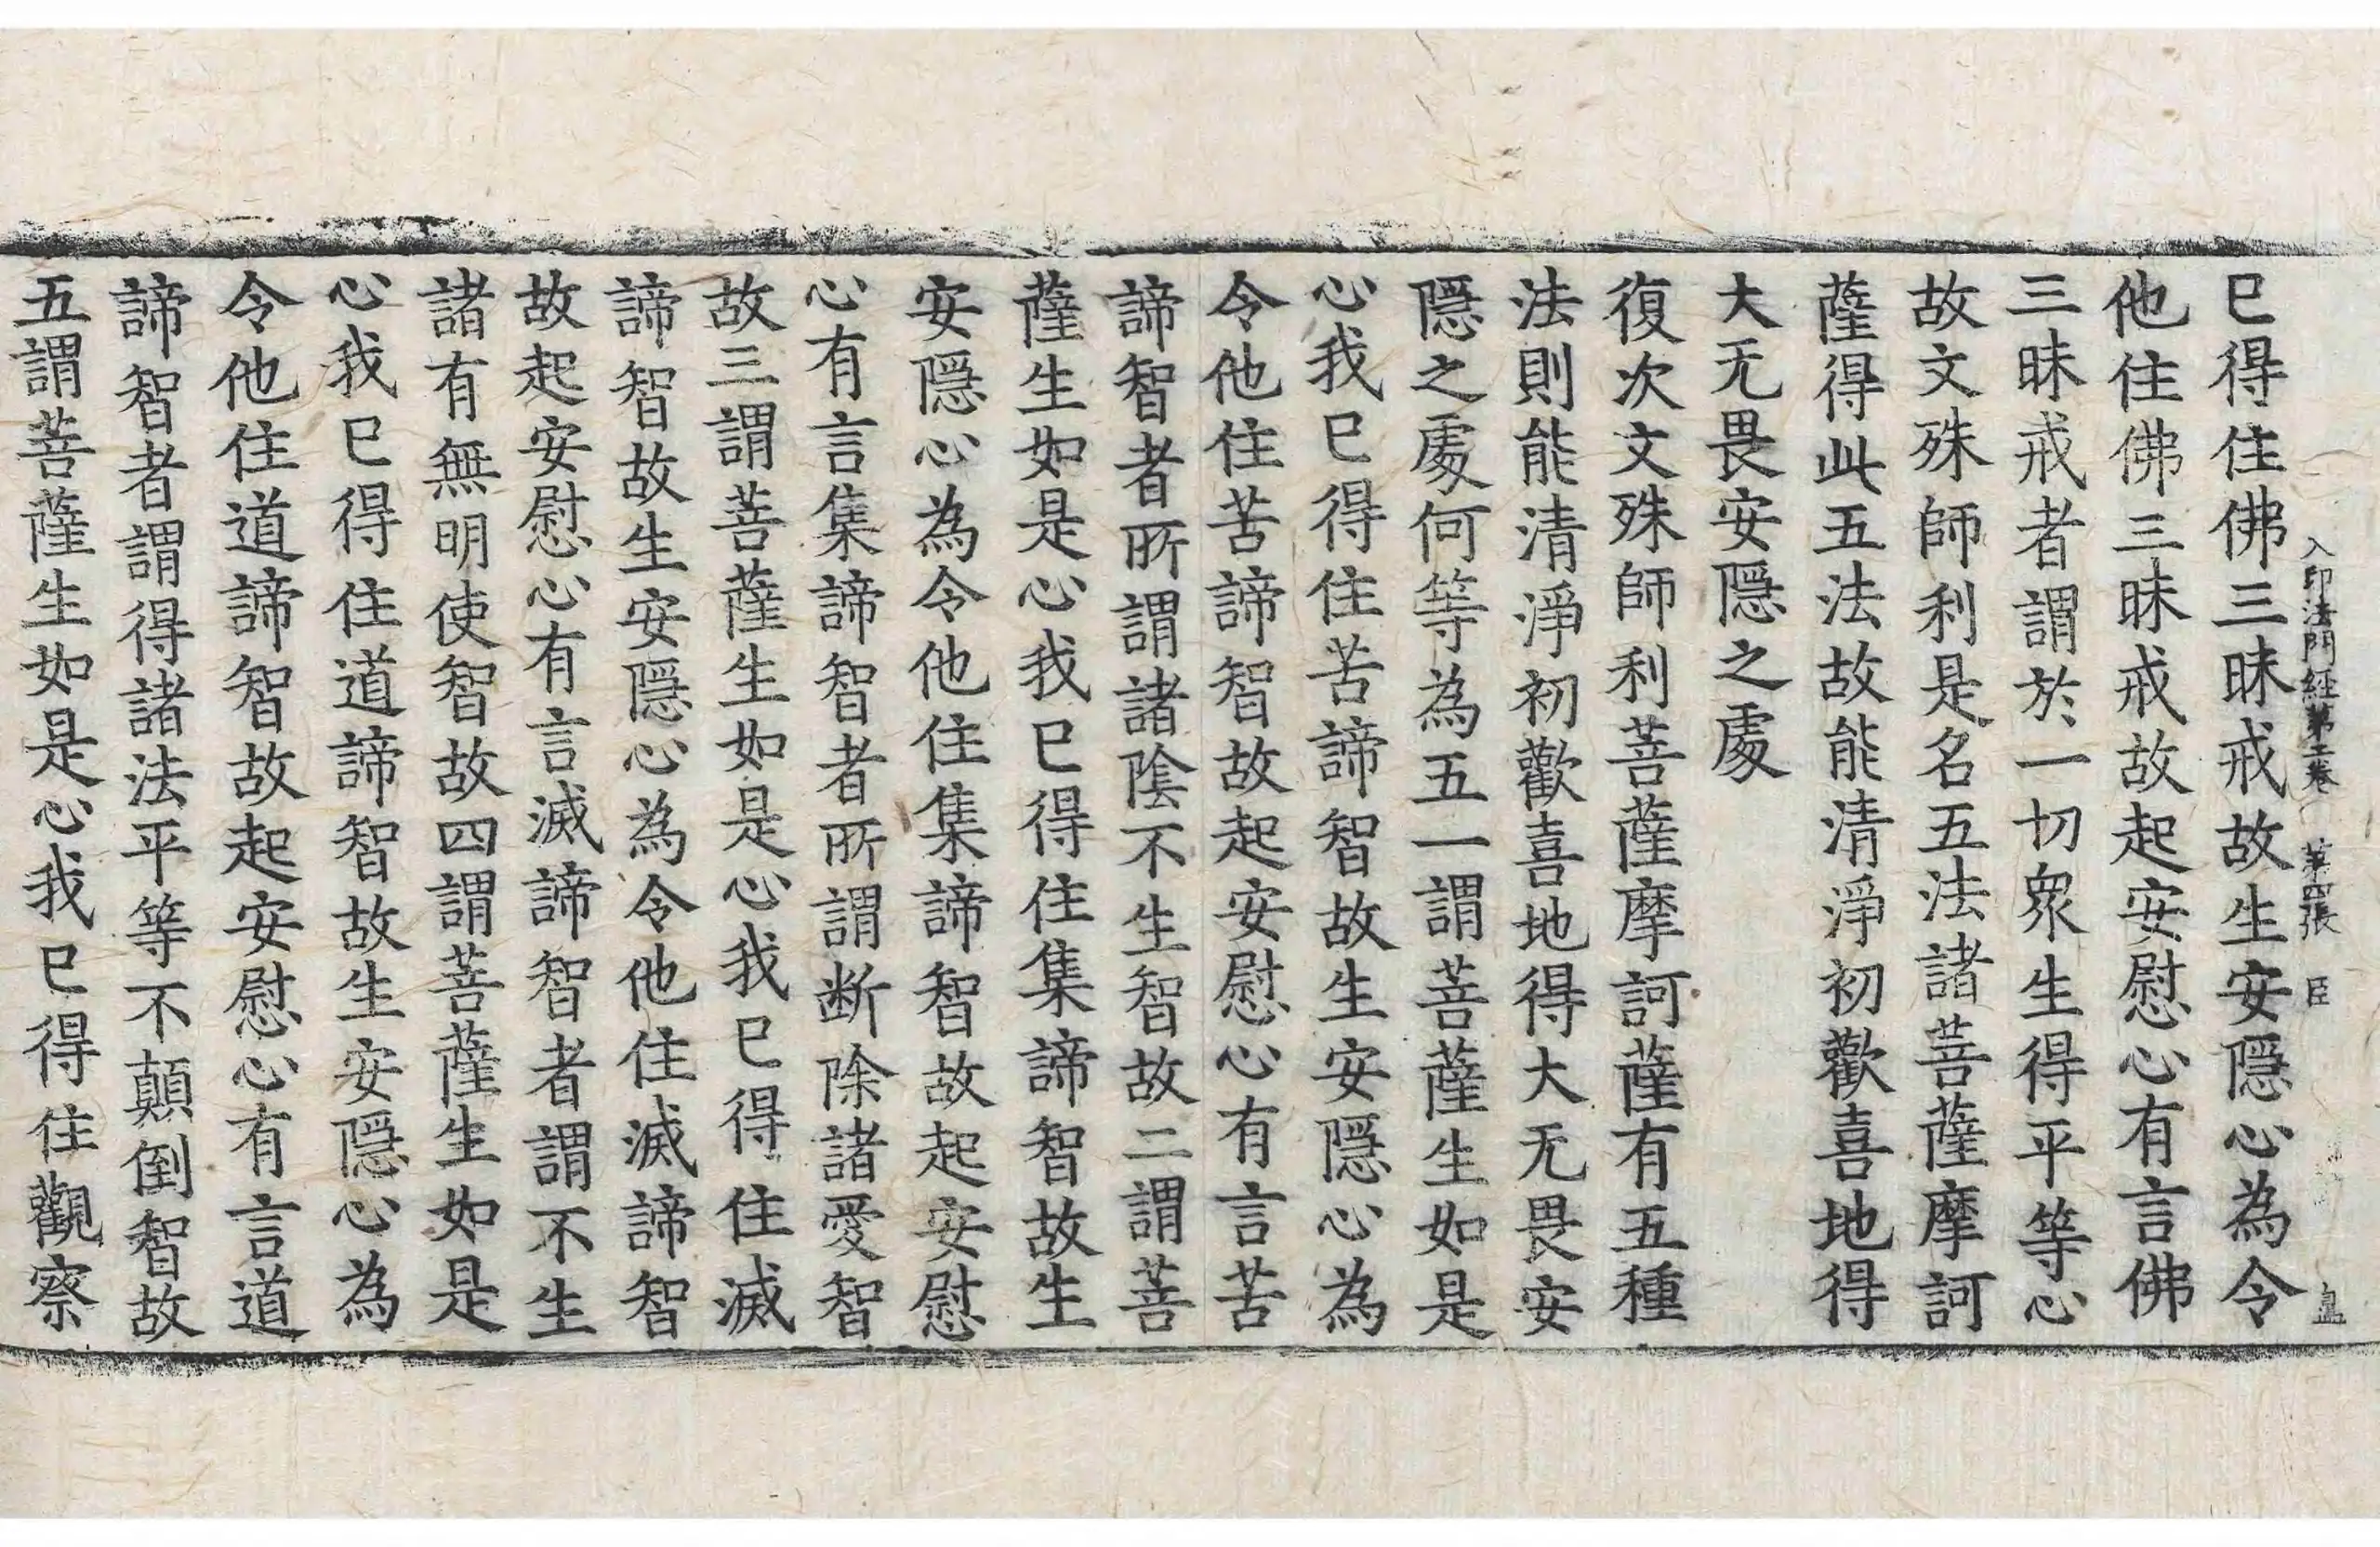 入印法門經第二卷 第四張 臣 皇
已得住佛三昧戒故生安隱心為令
他住佛三昧戒故起安慰心有言佛
三昧戒者謂於一切衆生得平等心
故文殊師利是名五法諸菩薩摩訶
薩得此五法故能清淨初歡喜地得
大无畏安隱之處
復次文殊師利菩薩摩訶薩有五種
法則能清淨初歡喜地得大无畏安
隱之處何等為五一謂菩薩生如是
心我已得住苦諦智故生安隱心為
令他住苦諦智故起安慰心有言苦
諦智者所謂諸陰不生智故二謂菩
薩生如是心我已得住集諦智故生
安隱心為令他住集諦智故起安慰
心有言集諦智者所謂断除諸愛智
故三謂菩薩生如是心我已得住滅
諦智故生安隱心為令他住滅諦智
故起安慰心有言滅諦智者謂不生
諸有無明使智故四謂菩薩生如是
心我已得住道諦智故生安隱心為
令他住道諦智故起安慰心有言道
諦智者謂得諸法平等不顛倒智故
五謂菩薩生如是心我已得住觀察